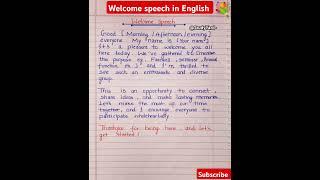 Welcome speech in English
Welcome Speech
Good (Morning / Afternoon / evening)
everyone. My name is (Your name)
it's a pleasure to welcome you all
here today. We've gathered to
the purpose eg. Farewell, seminar,
function etc.) and I'm thrilled to
see such an enthusiastic and diverse
group.
This is an opportunity to connect,
share ideas, and make lasting memories
Let's make the most of our time
together, and I encourage everyone to
participate wholeheartedly
Thankyou for being here, and let's
get started!
Subscribe